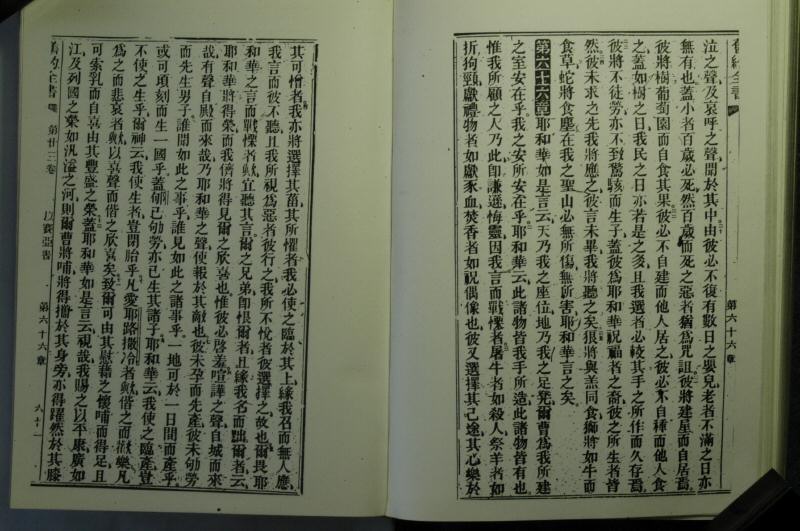 舊約全書
泣之聲及哀呼之聲聞於其中由彼必不復有數日之嬰兒老者不滿之日亦
無有也蓋小者百歲必死然百歲而死之惡者猶為咒詛彼將建星而自居焉
彼將樹葡萄園而自食其果彼必不自建而他人居之彼必不自種而他人食
之蓋如樹之日我民之日亦若是之矣且我選者必較其手之所作而久存焉
彼將不徒勞亦不致驚駭而生子蓋彼為耶和華祝福者之裔彼之所生者皆
然彼未求之先我將應之彼言未畢我將聽之矣狼將與羔同食獅將如牛而
食草蛇將食塵在我之聖山必無所傷無所害耶和華言之矣
第六十六章耶和華如是言云天乃我之座位地乃我之足凳爾曹為我所建
之室安在乎我之安所安在乎耶和華云此諸物皆我手所造此諸物皆有也
惟我所顧人之乃此即謙遜悔靈因我言而戰慄者屠牛者如殺人祭羊者如
折狗頸獻禮物者如獻豕血焚香者如祝偶像也彼又選擇其己途其心樂於
第六十六章
其可憎者我亦將選擇其菑其所懼者我必使之臨於其上緣我召而無人應
我言而彼不聽且我所視為惡者彼行之我所不悅者彼選擇之故也爾畏耶
和華之言而戰慄者歟宜聽其言爾之兄弟即恨爾者且緣我名而黜爾者云
耶和華將得榮而我儕將得見爾之欣喜也惟彼必啓羞喧譁之聲自城而來
哉有聲自殿而來哉乃耶和華之聲使報於其敵也彼未孕而先產彼未劬勞
而先生男子誰聞如此之事乎誰見如此之諸事乎一地可於一日間而產乎
或可頃刻而生一國乎蓋郇已劬勞亦已生其諸子耶和華云我使之臨產豈
不使之生乎爾神云我使生者豈閉胎乎凡愛耶路撒冷者歟偕之而歡樂凡
為之而悲哀者歟以喜聲而偕之欣喜矣致爾可由其慰藉之懷哺而得足且
可索乳而自喜由其豐盛之榮蓋耶和華如是言云視哉我賜之以平康廣如
江及列國之榮如汎溢之河則爾曹將哺將得擔於其身旁亦得躍然於其膝
舊約全書 第廿三卷 以賽亞書 第六十六章 六十一